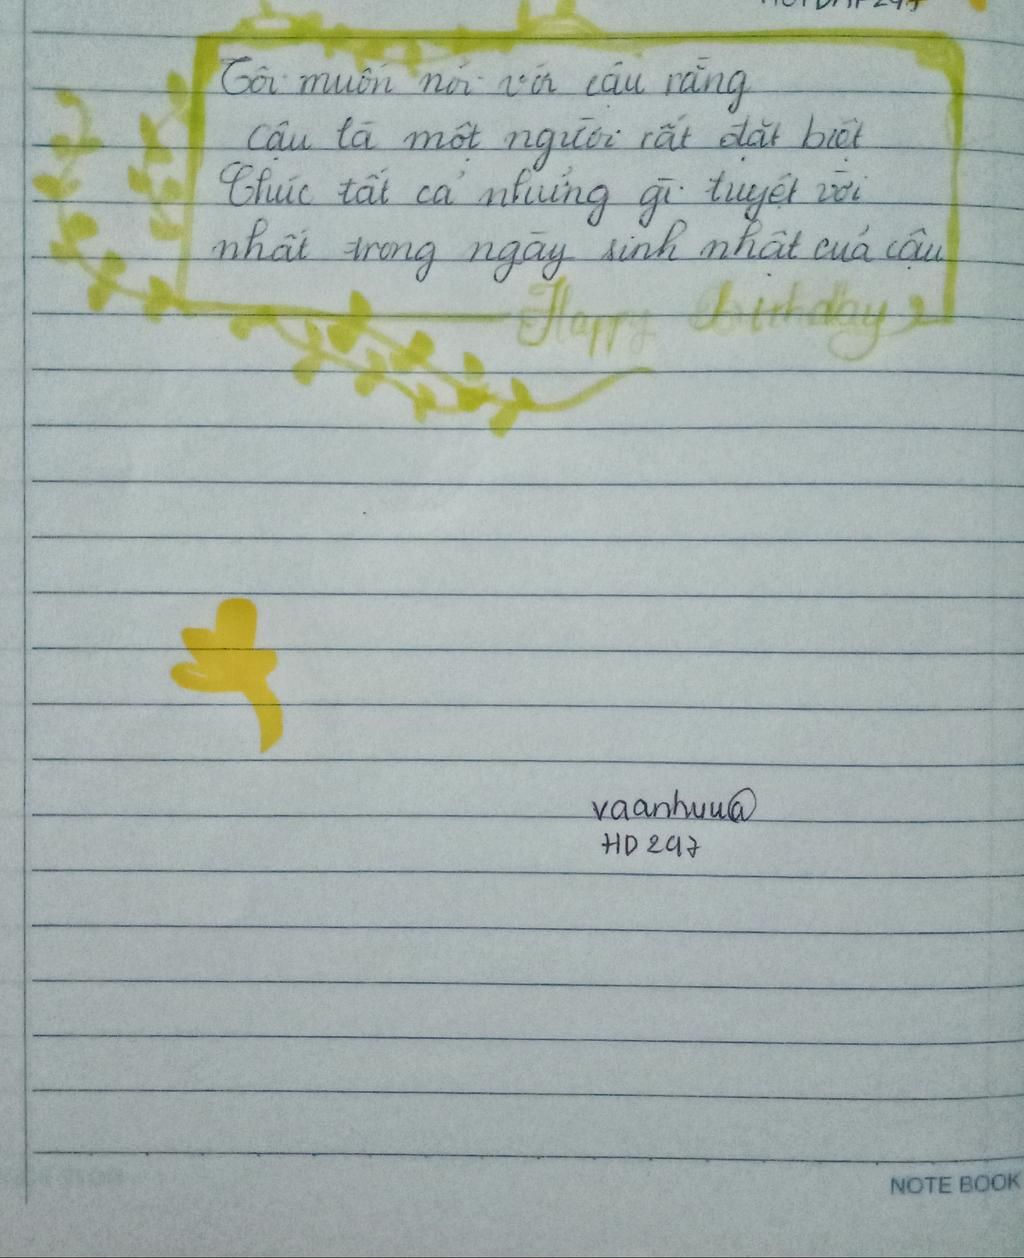 Tôi muốn nói với cậu rằng
cậu là một người rất đặt biệt
Chúc tất cả những gì tuyệt vời
nhất trong ngày sinh nhật của cậu
Happy Birthday
vaanhuu@
HD 297
NOTE BOOK